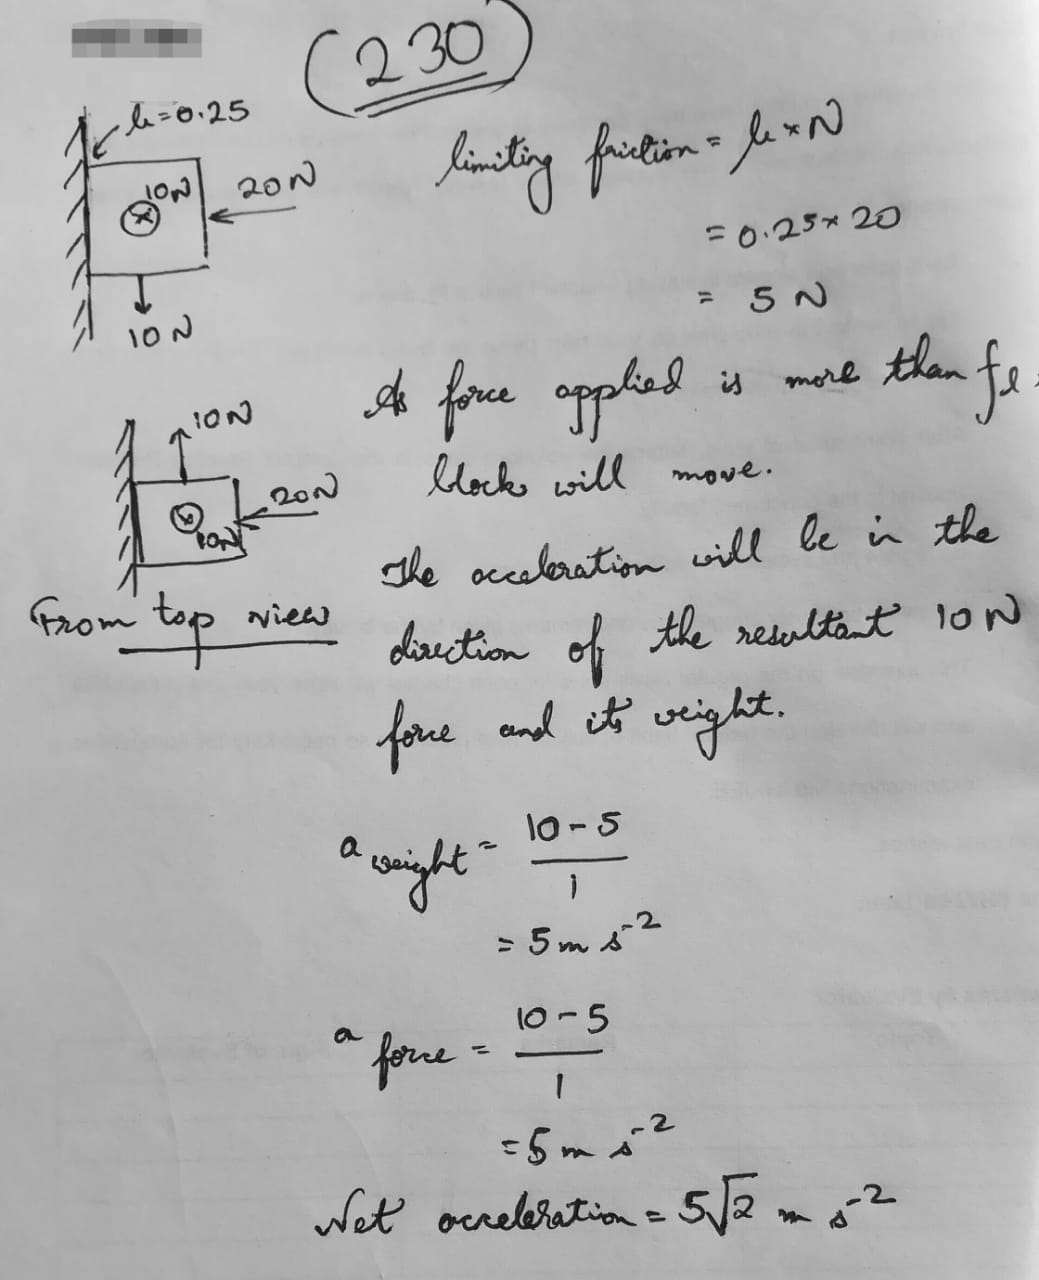 (230)
μ=0.25
10N
20N
10N
limiting friction = μ × N
= 0.25 × 20
= 5 N
As force applied is more than fl,
block will move.
10N
20N
10N
From top view
The acceleration will be in the
direction of the resultant 10 N
force and its weight.
a weight = 10-5
1
= 5 m s-2
a force = 10-5
1
= 5 m s-2
Net acceleration = 5√2 m s-2